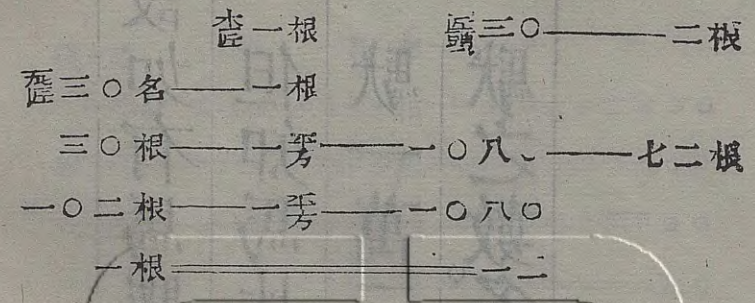 木匠一根 三〇——二根
三〇名——一根
三〇根——一平方——一〇八、——七二根
一〇二根——一平方——一〇八〇
一根══一二